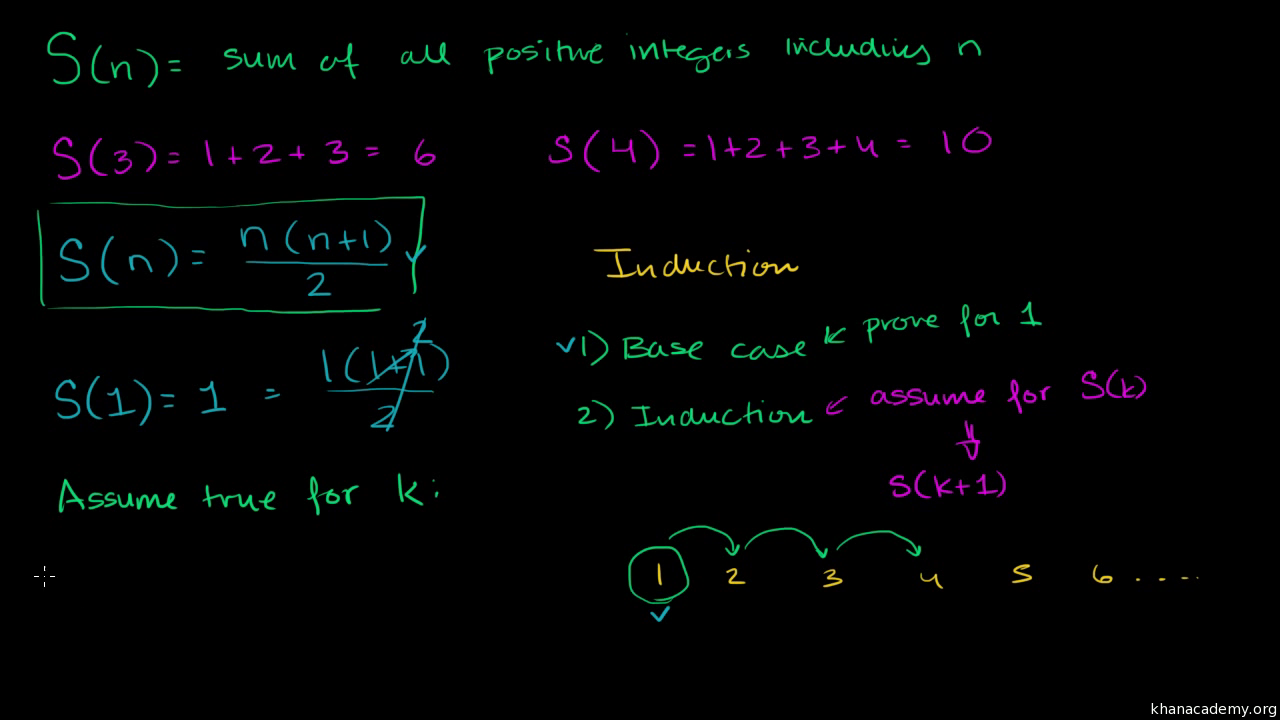 S(n) = sum of all positive integers including n
S(3) = 1+2+3 = 6
S(4) = 1+2+3+4 = 10
S(n) = n(n+1)/2
S(1) = 1 = 1(1+1)/2 2
Assume true for k:
Induction
1) Base case prove for 1
2) Induction assume for S(k)
S(k+1)
1 2 3 4 5 6 ....
khanacademy.org